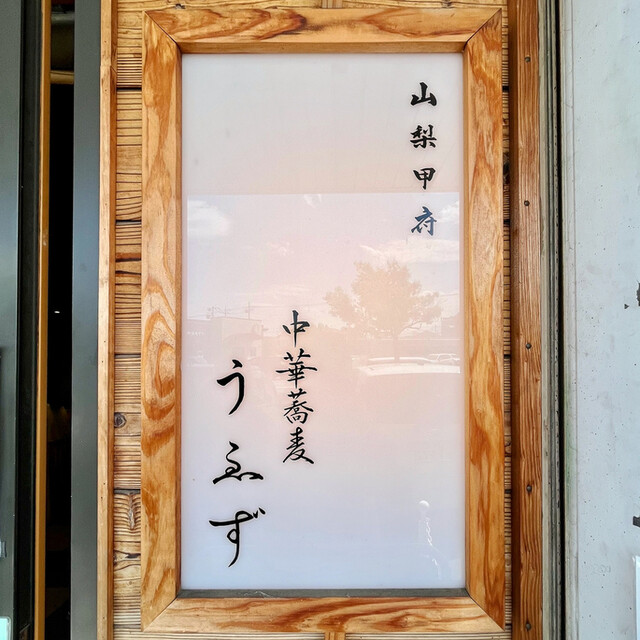 山梨甲府
中華蕎麦
うゑず